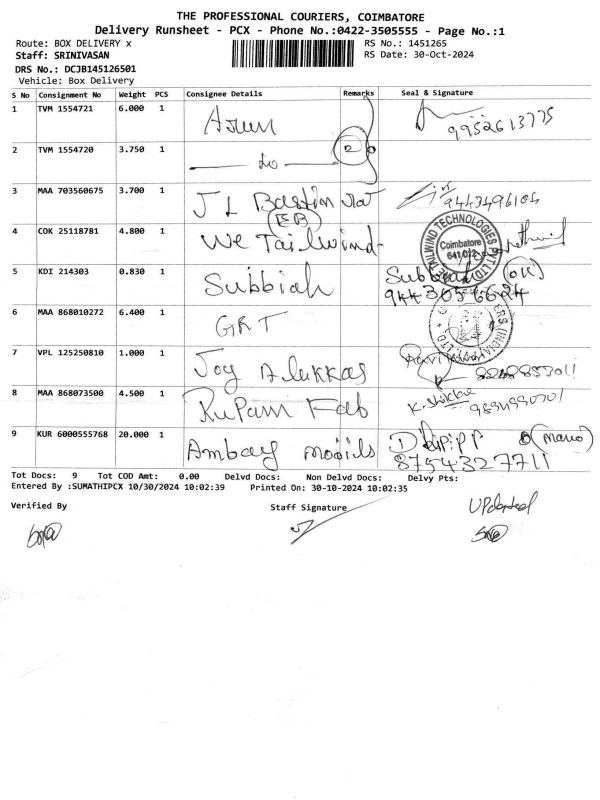 THE PROFESSIONAL COURIERS, COIMBATORE
Delivery Runsheet - PCX - Phone No.:0422-3505555 - Page No.:1
Route: BOX DELIVERY x RS No.: 1451265
Staff: SRINIVASAN RS Date: 30-Oct-2024
DRS No.: DCJB145126501
Vehicle: Box Delivery
S No Consignment No Weight PCS Consignee Details Remarks Seal & Signature
1 TVM 1554721 6.000 1 Arun
9952613775
2 TVM 1554720 3.750 1 do
3 MAA 703560675 3.700 1 J L Bastin
9443496104
(EB)
4 COK 25118781 4.800 1 We Tailwind
TAILWIND TECHNOLOGIES PVT LTD
Coimbatore
641 012
5 KDI 214303 0.830 1 Subbiah Subbiah (OK)
6 MAA 868010272 6.400 1 GRT
7 VPL 125250810 1.000 1 Joy Alukkas
8 MAA 868073500 4.500 1 Rupam Fab
9 KUR 6000555768 20.000 1 Ambay
8754327711
Tot Docs: 9 Tot COD Amt: 0.00 Delvd Docs: Non Delvd Docs: Delvy Pts:
Entered By :SUMATHIPCX 10/30/2024 10:02:39 Printed On: 30-10-2024 10:02:35
Verified By Staff Signature